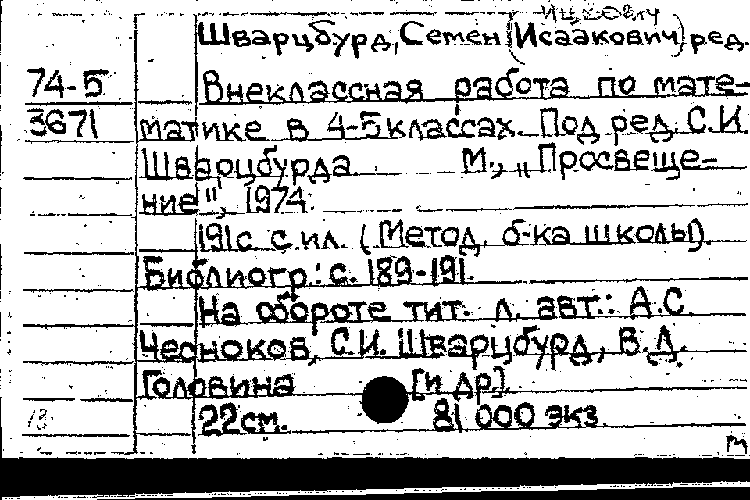 Ицкович
Шварцбурд, Семен (Исаакович), ред.
74-5 Внеклассная работа по мате-
3671 матике в 4-5 классах. Под ред. С.И.
Шварцбурда М., „Просвеще-
ние", 1974.
191 с. с ил. (Метод. б-ка школы).
Библиогр.: с. 189-191.
На обороте тит. л. авт.: А.С.
Чесноков, С.И. Шварцбурд, В.Д.
Головина [и др].
22 см. 81 000 экз.